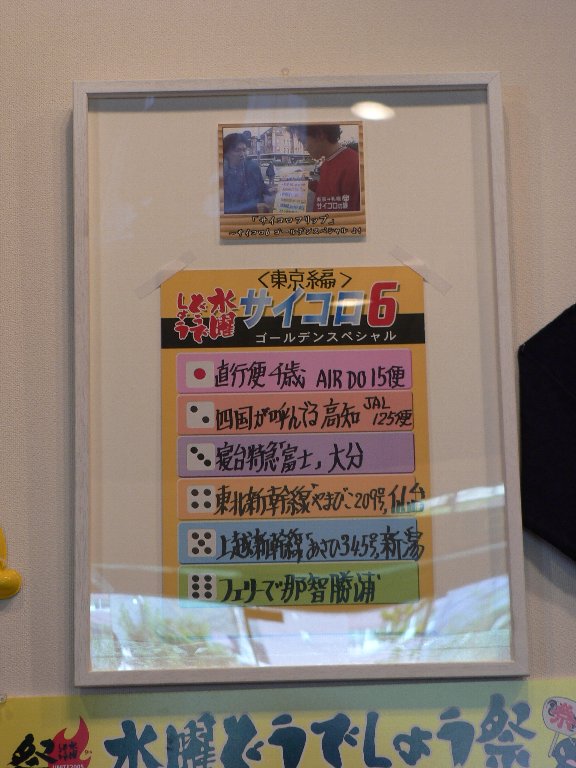 東京→札幌
サイコロの旅
「サイコロフリップ」
〜サイコロ6 ゴールデンスペシャルより
<東京編>
水曜どうでしょう
サイコロ6
ゴールデンスペシャル
直行便 千歳 AIR DO 15便
四国が呼んでる 高知 JAL 125便
寝台特急「富士」大分
東北新幹線「やまびこ209号」仙台
上越新幹線「あさひ345号」新潟
フェリーで那智勝浦
祭 UNITE2005
水曜どうでしょう祭